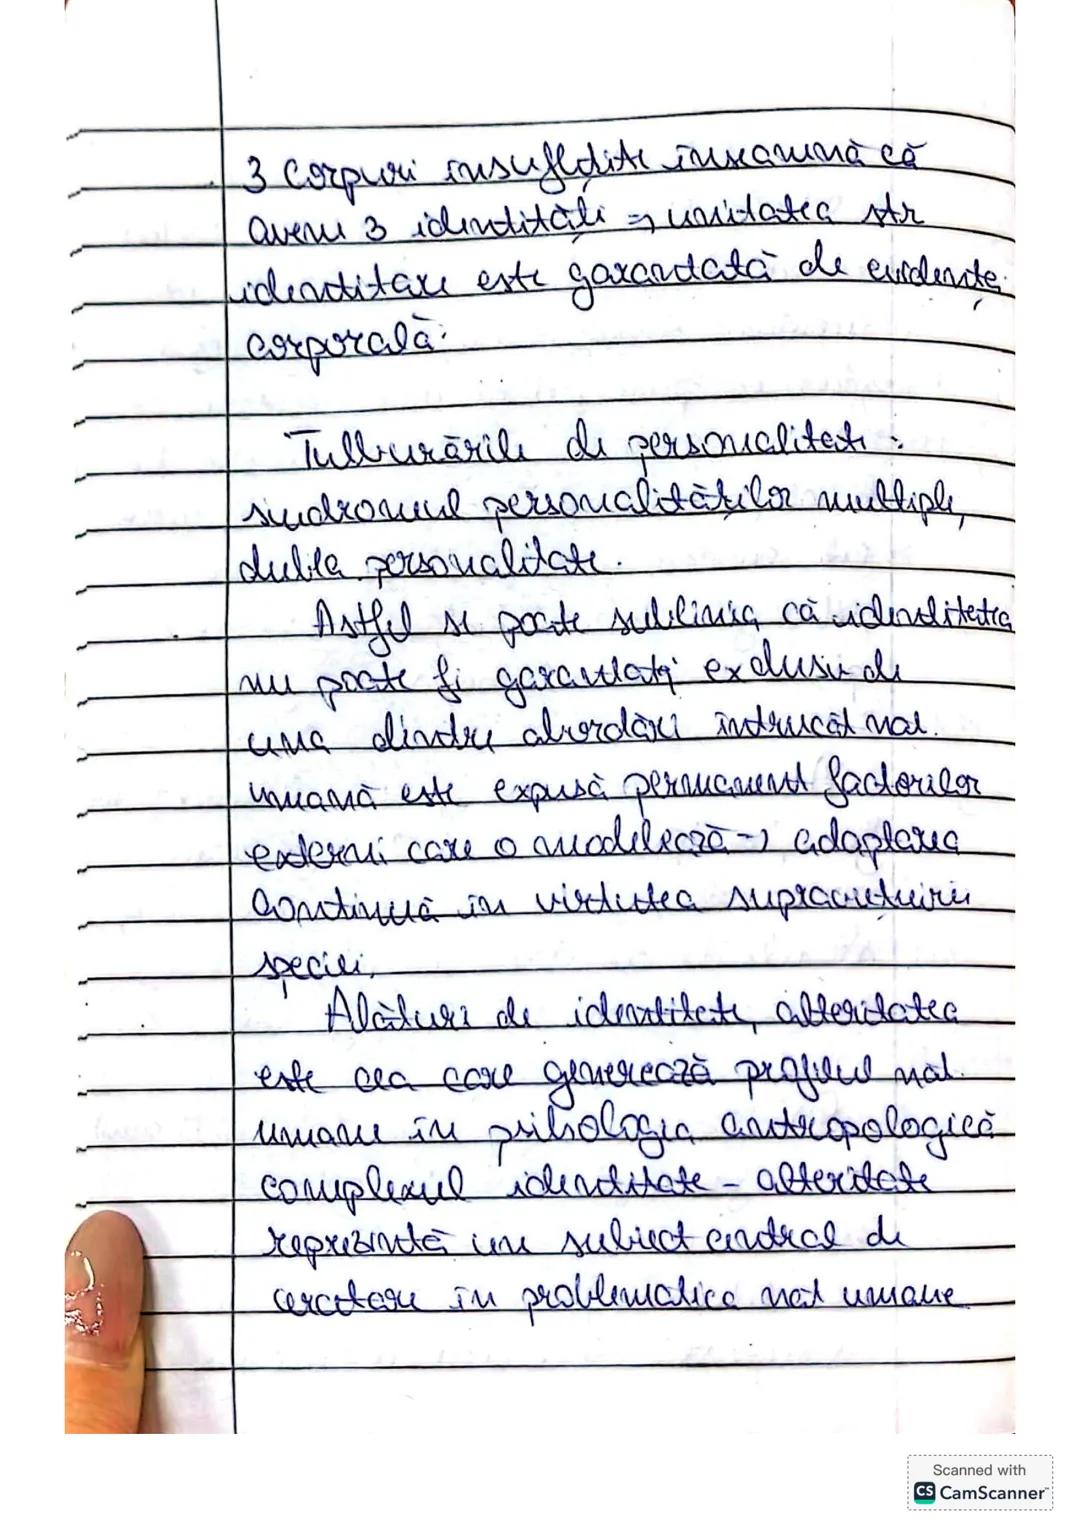 3 corpuri insuflețite înseamnă că
avem 3 identități => unitatea str
identitare este garantată de evidența
corporală.
Tulburările de personalitate:
sindromul personalităților multiple,
dubla personalitate.
Astfel se poate sublinia că identitatea
nu poate fi garantată exclusiv de
una dintre abordări întrucât nat.
umană este expusă permanent factorilor
externi care o modelează -> adaptarea
continuă în virtutea supraviețuirii
speciei.
Alături de identitate, alteritatea
este cea care generează profilul nat.
umane în psihologia antropologică
complexul identitate - alteritate
reprezintă un subiect central de
cercetare în problematica nat umane
Scanned with
CS CamScanner